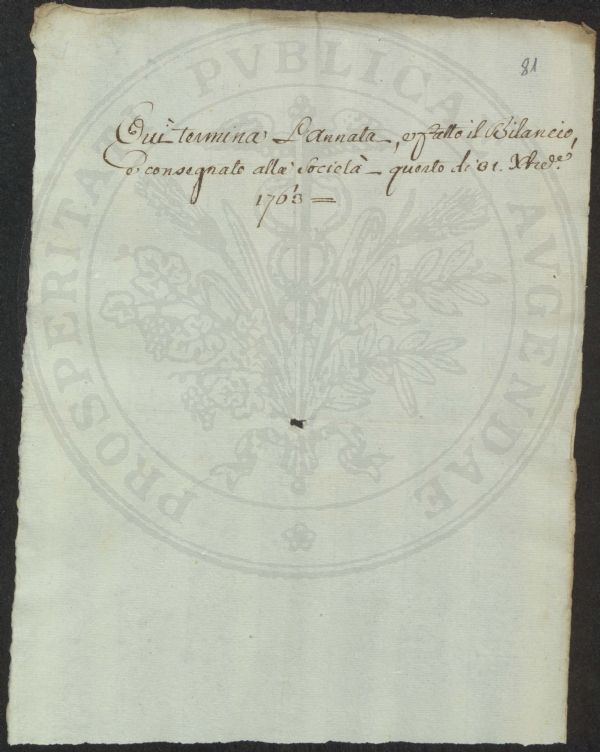 81
Qui termina L'annata, e fatto il Bilancio,
e consegnato alla Società questo di 31. Xbre.
1763 =
PROSPERITATI PVBLICAE AVGENDAE